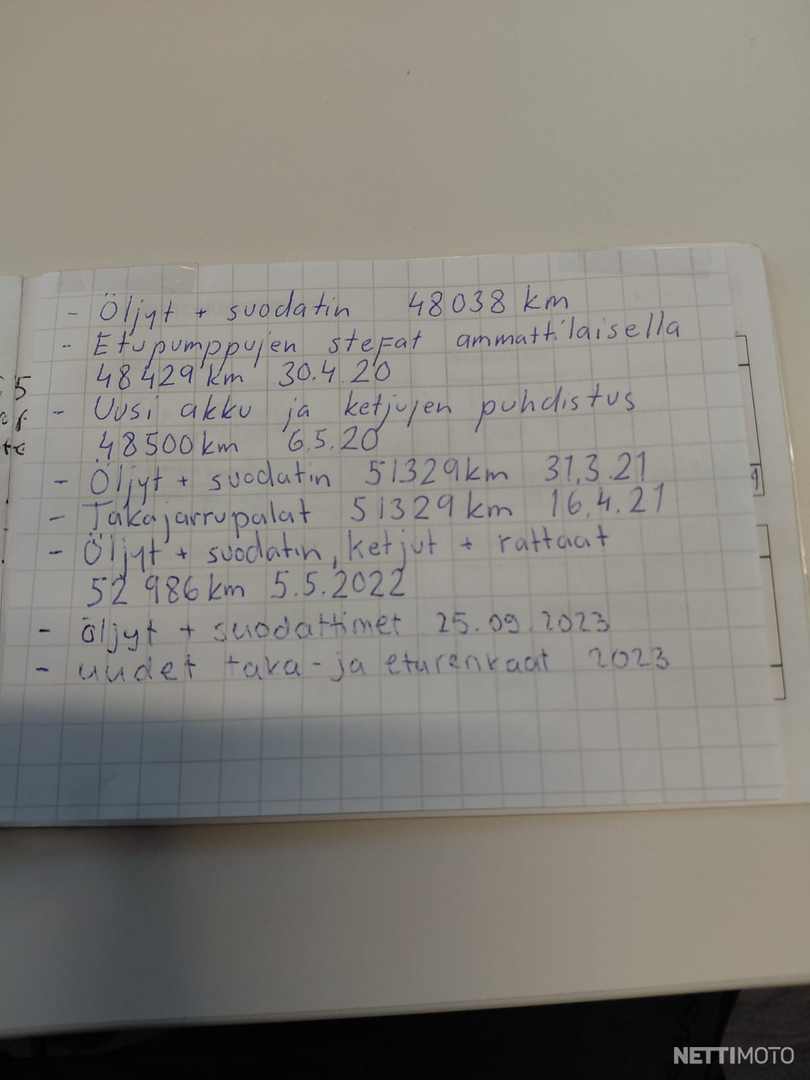 - Öljyt + suodatin 48038 km
- Etupumppujen stefat ammattilaisella
48429 km 30.4.20
- Uusi akku ja ketjujen puhdistus
48500km 6.5.20
- Öljyt + suodatin 51329km 31.3.21
- Takajarrupalat 51329km 16.4.21
- Öljyt + suodatin, ketjut + rattaat
52 986km 5.5.2022
- öljyt + suodattimet 25.09.2023
- uudet taka-ja eturenkaat 2023
NETTIMOTO